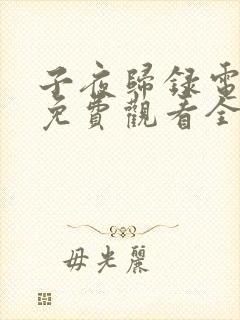 子夜歸錄電
免費觀看全
毋光麗